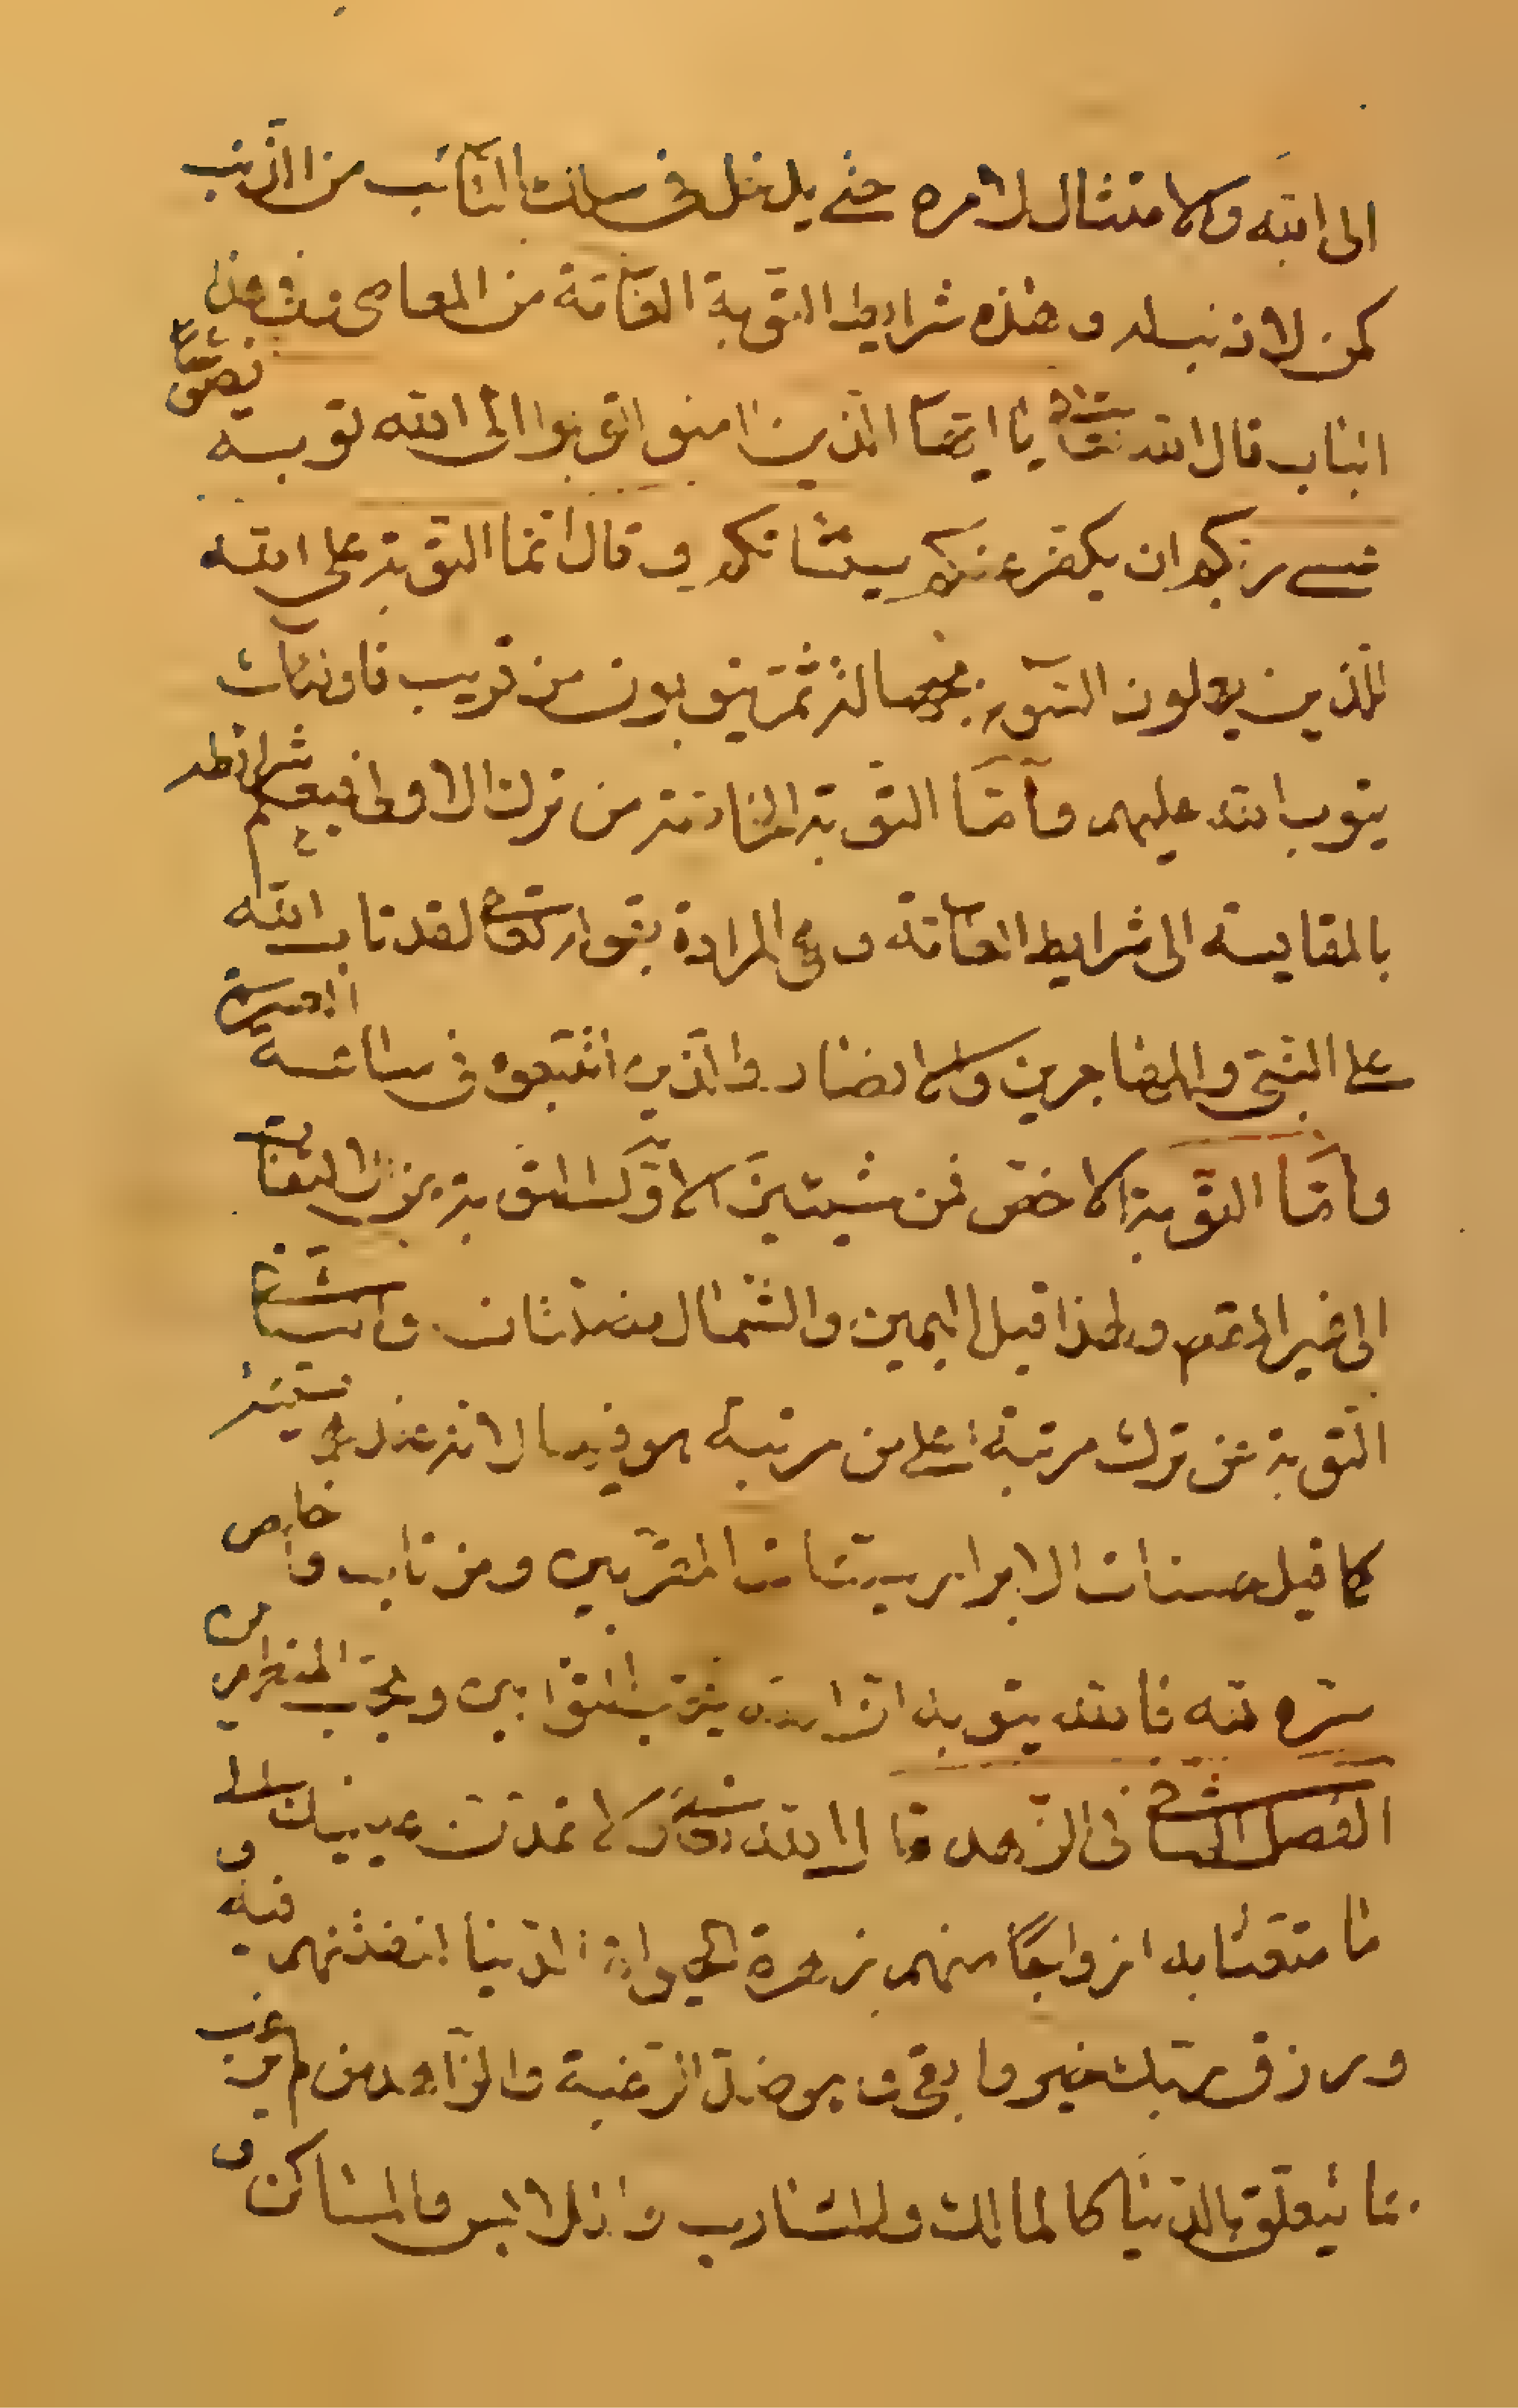 الى الله والامتثال لامره حتى يدخل في سلك التائب من الذنب
كمن لا ذنب له وهذه شرايط التوبة العامة من المعاصي وفي هذا
الباب قال الله تعالى يا ايها الذين امنوا توبوا الى الله توبة نصوحا
عسى ربكم ان يكفر عنكم سيئاتكم وقال انما التوبة على الله
للذين يعملون السوء بجهالة ثم يتوبون من قريب فاولئك
يتوب الله عليهم واما التوبة الخاصة من ترك الاولى فيعلم شرائطه
بالمقايسة الى شرايط العامة وهي المرادة بقوله تعالى لقد تاب الله
على النبي والمهاجرين والانصار والذين اتبعوه في ساعة العسرة
واما التوبة الاخص فمن شيئين الاول التوبة من التفات
الى غير المقصد ولهذا قيل اليمين والشمال مضلتان والثاني
التوبة عن ترك مرتبة اعلى من مرتبة هو فيها لانه عندهم سيئة
كما قيل حسنات الابرار سيئات المقربين ومن تاب واخلص
سره لله فالله يتوب له ان الله يحب التوابين ويحب المتطهرين
الفصل الثاني في الزهد قال الله تعالى ولا تمدن عينيك الى
ما متعنا به ازواجا منهم زهرة الحيوة الدنيا لنفتنهم فيه و
ورزق ربك خير وابقى وهو ضد الرغبة والزاهد من لم يرغب
مما يتعلق بالدنيا كالمآكل والمشارب والملابس والمساكن و